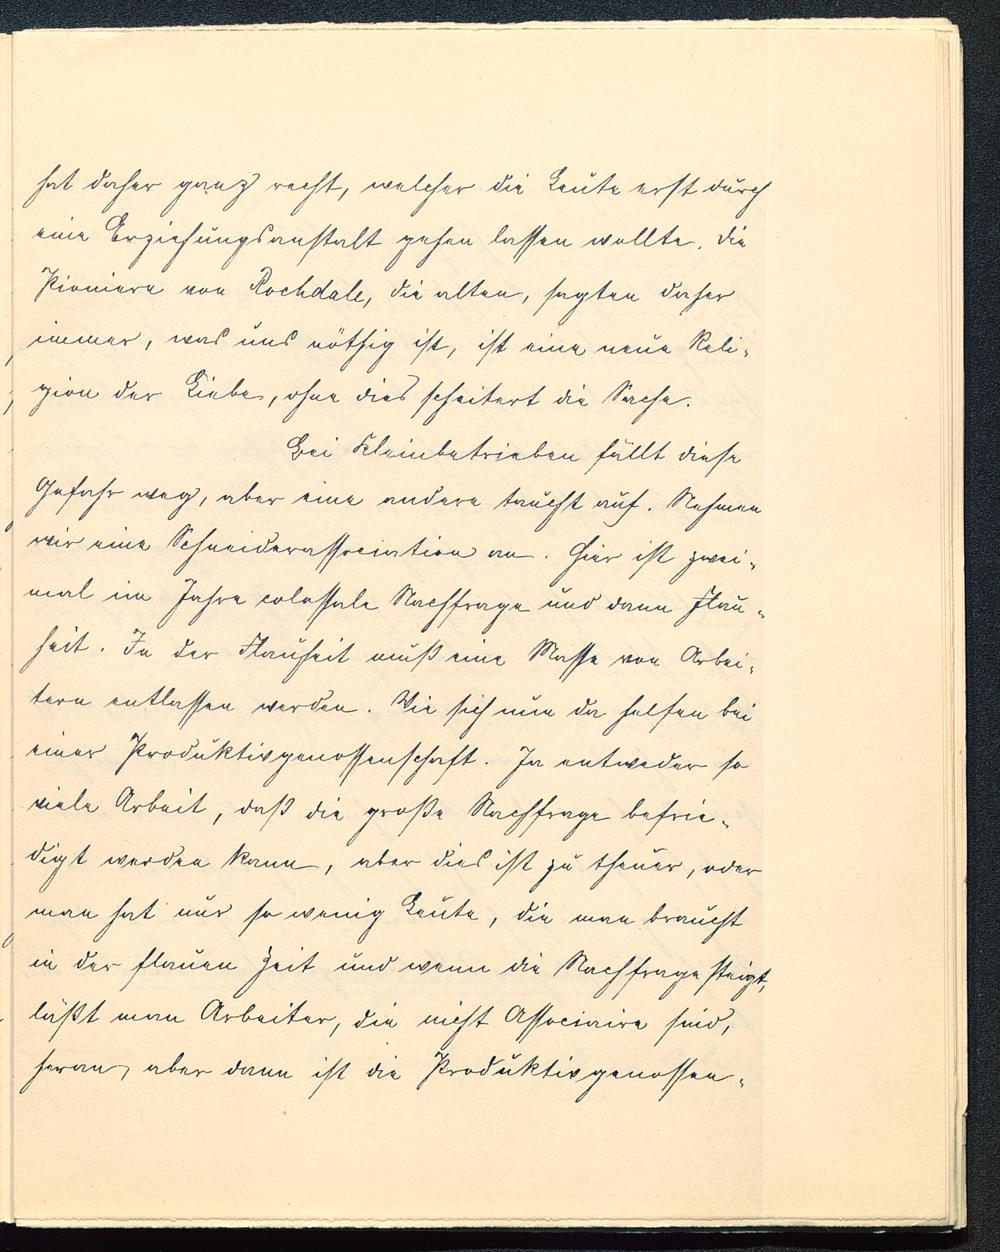 hat daher ganz recht, welcher die Leute erst durch
eine Erziehungsanstalt gehen lassen wollte. Die
Pioniere von Rochdale, die alten, sagten daher
immer, was uns nöthig ist, ist eine neue Reli-
gion der Liebe, ohne dies scheitert die Sache.
Bei Kleinbetrieben fällt diese
Gefahr weg, aber eine andere taucht auf. Nehmen
wir eine Schneiderassociation an. Hier ist zwei-
mal im Jahre colossale Nachfrage und dann Flau-
heit. In der Flauheit muß eine Masse von Arbei-
tern entlassen werden. Wie sich nun da helfen bei
einer Produktivgenossenschaft. Ja entweder so
viele Arbeit, daß die große Nachfrage befrie-
digt werden kann, aber dies ist zu theuer, oder
man hat nur so wenig Leute, die man braucht
in der flauen Zeit und wenn die Nachfrage steigt,
läßt man Arbeiter, die nicht Associaire sind,
heran, aber dann ist die Produktivgenossen-